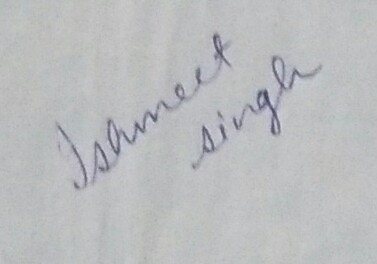 Ishmeet
singh